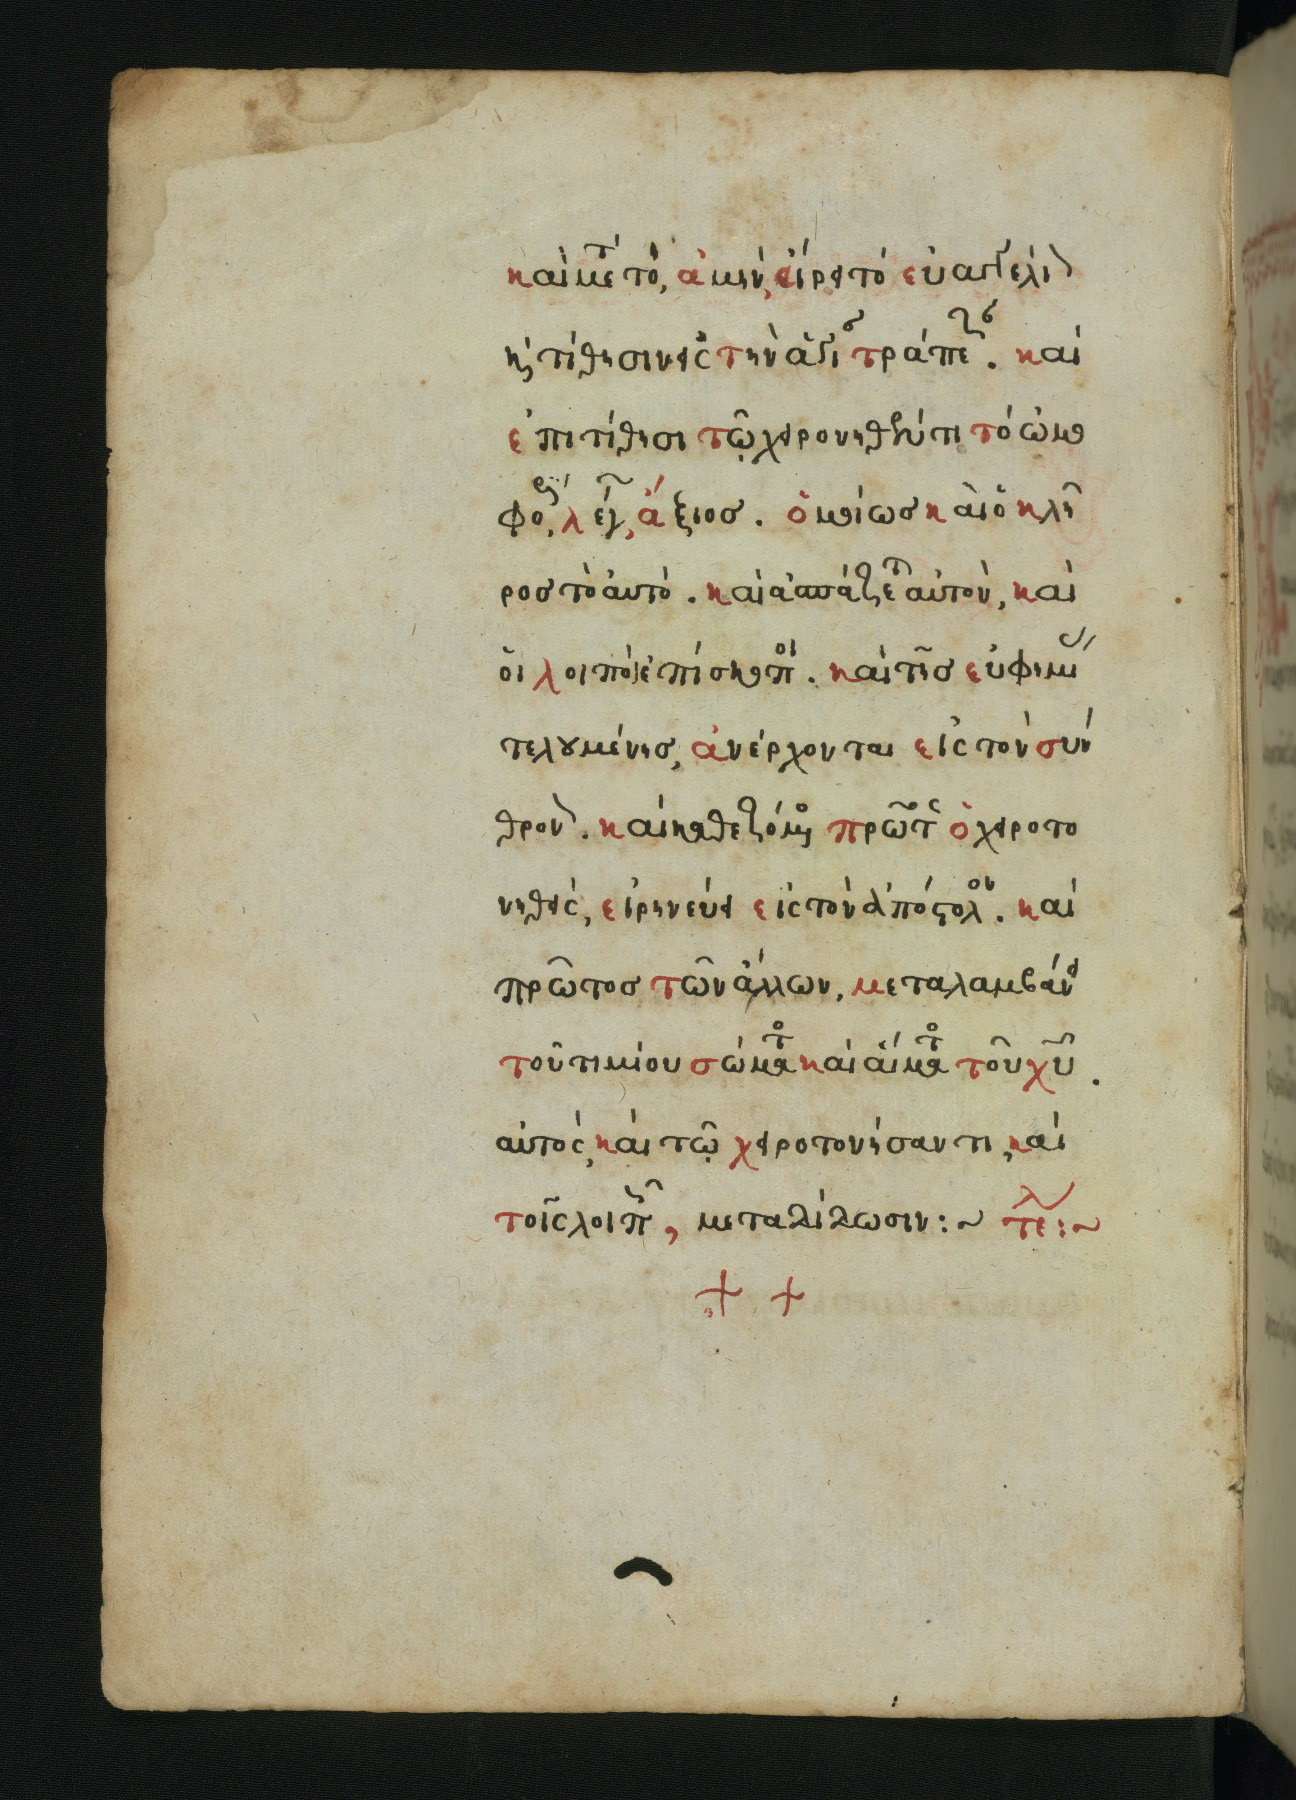 καὶ μετ τὸ, ἀμήν, αἴρει τὸ εὐαγγέλι
κ τίθησιν εἰς τὴν ἁγί τράπεζ. καὶ
ἐπιτίθησι τῷ χειρονηθέντι τὸ ὠμο
φό, λέγ, ἄξιος. ὁμοίως καὶ ὁ κλῆ
ρος τὸ αὐτό. καὶ ἀσπάζετ αὐτὸν, καὶ
οἱ λοιποὶ ἐπίσκοποι. καὶ τῆς εὐφημί
τελουμένης, ἀνέρχονται εἰς τὸν σύν
θρον. καὶ καθεζόμ πρῶτ ὁ χειροτο
νηθεὶς, εἰρηνεύει εἰς τὸν ἀπόστολον. καὶ
πρῶτος τῶν ἄλλων, μεταλαμβάνει
τοῦ τιμίου σώματο καὶ αἵματο τοῦ χυ.
αὐτὸς, καὶ τῷ χειροτονήσαντι, καὶ
τοῖς λοιπ, μεταδίδωσιν:~ τελ:~